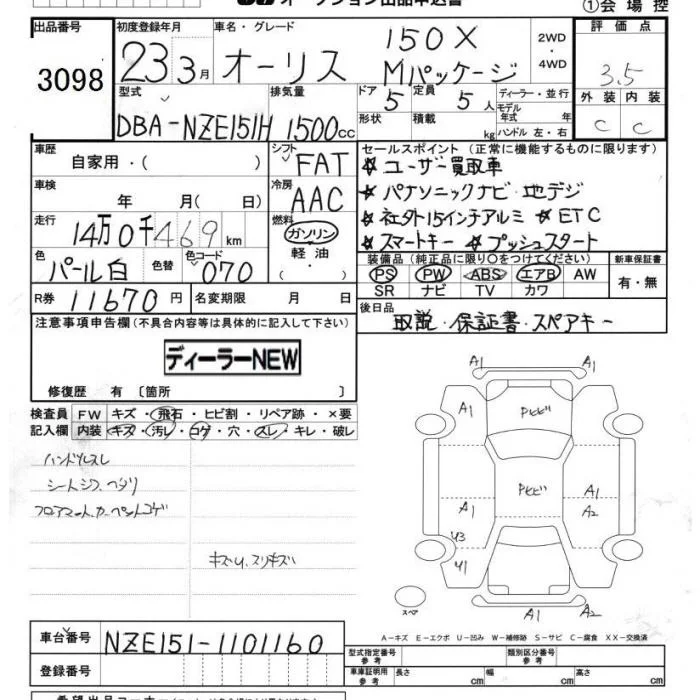 ①会場控
出品番号 初度登録年月 車名・グレード 2WD・4WD 評価点
3098 23 3月 オーリス 150X Mパッケージ 3.5
型式 排気量 ドア 定員 ディーラー・並行 外装 内装
DBA-NZE151H 1500cc 5 5人 モデル年式 年 C C
形状 積載 kg ハンドル 左・右
車歴 シフト セールスポイント (正常に機能するものに限ります)
自家用・( ) FAT ☆ユーザー買取車
車検 冷房 ☆パナソニックナビ・地デジ
年 月( 日) AAC ☆社外15インチアルミ ☆ETC
走行 燃料 ☆スマートキー ☆プッシュスタート
14万0千469km ガソリン・軽油・( )
色 色替 色コード 装備品 (純正品に限り○をつけてください) 新車保証書
パール白 070 PS PW ABS エアB AW 有・無
SR ナビ TV カワ
R券 11670円 名変期限 月 日 後日品
取説・保証書・スペアキー
注意事項申告欄(不具合内容等は具体的に記入して下さい)
ディーラーNEW
修復歴 有 〔箇所 〕
検査員 FW キズ・飛石・ヒビ割・リペア跡・×要
記入欄 内装 キズ・汚レ・コゲ・穴・スレ・キレ・破レ
ハンドルスレ
シートシワ、ヘタリ
フロアマット、カーペットコゲ
キズU、スリキズ
A1 A1
A1 Pヒビ
Pヒビ A1
A1 A2
U3
Y1
スペア A1 A2
A－キズ E－エクボ U－凹み W－補修跡 S－サビ C－腐食 XX－交換済
車台番号 NZE151-1101160 型式指定番号 参考 類別区分番号 参考
登録番号 車庫証明用 参考 長さ cm 幅 cm 高さ cm